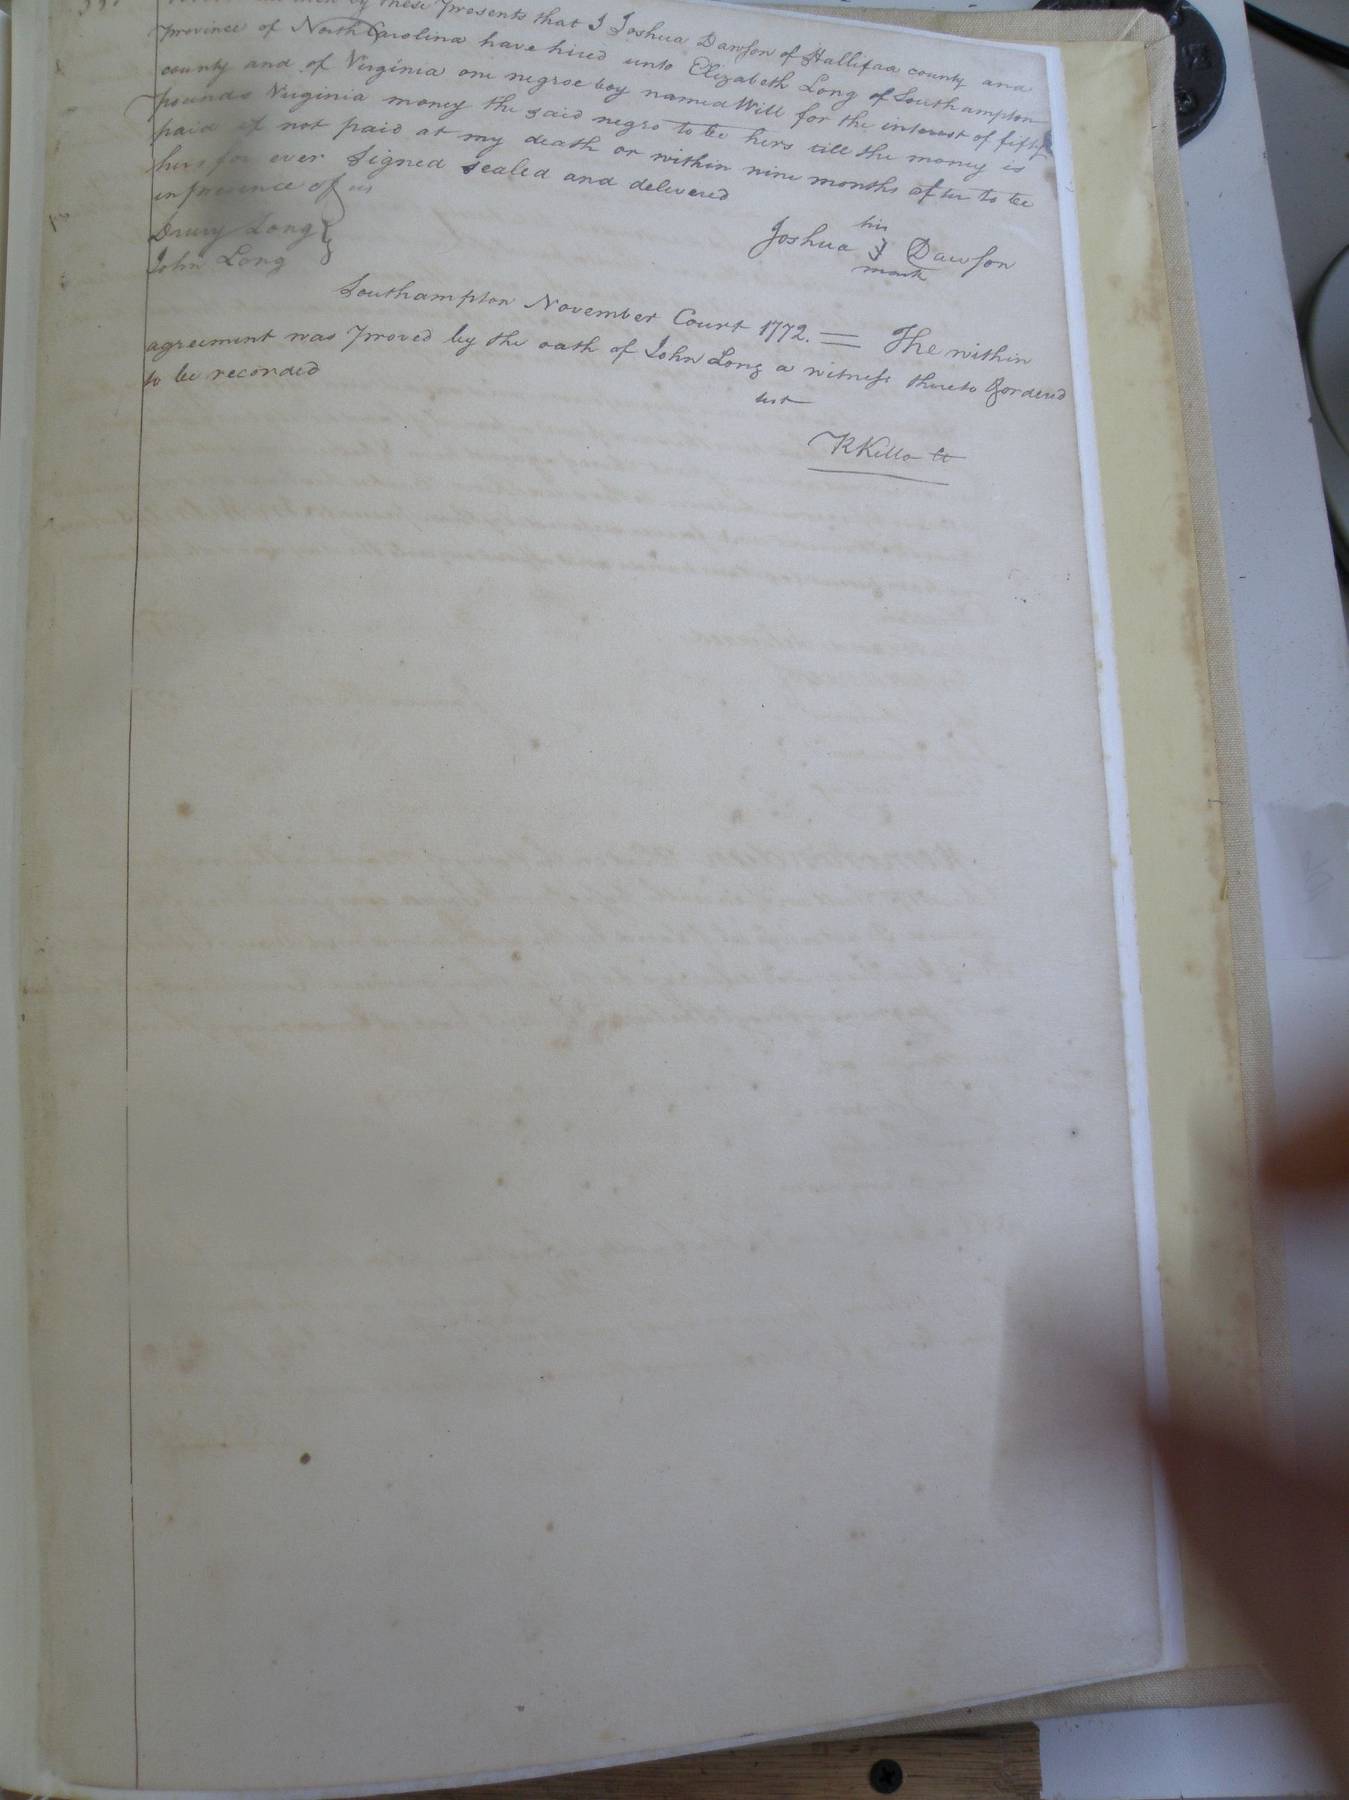 these Presents that I Joshua Dawson of Hallifax county and
Province of North Carolina have hired unto Elizabeth Long of Southampton
county and of Virginia one negroe boy named Will for the interest of fifty
Pounds Virginia money the said negro to be hers till the money is
paid if not paid at my death or within nine months after to be
hers for ever Signed Sealed and delivered
in presence of us
Drury Long
John Long
his
Joshua Dawson
mark
Southampton November Court 1772. = The within
agreement was Proved by the oath of John Long a witness thereto & ordered
to be recorded
test
RKello Ct